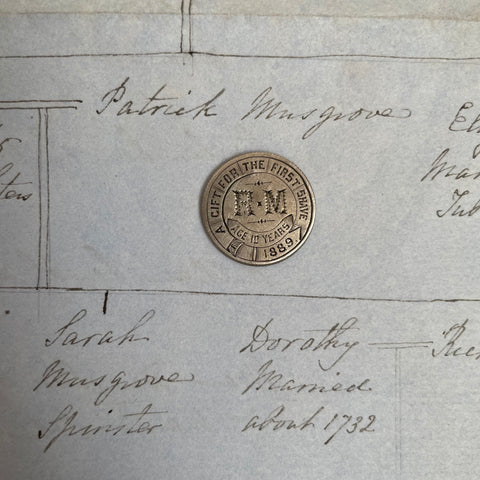 Patrick Musgrove
A GIFT FOR THE FIRST SHAVE
H M
AGE 10 YEARS
1889
Sarah
Musgrove
Spinster
Dorothy
Married
about 1732